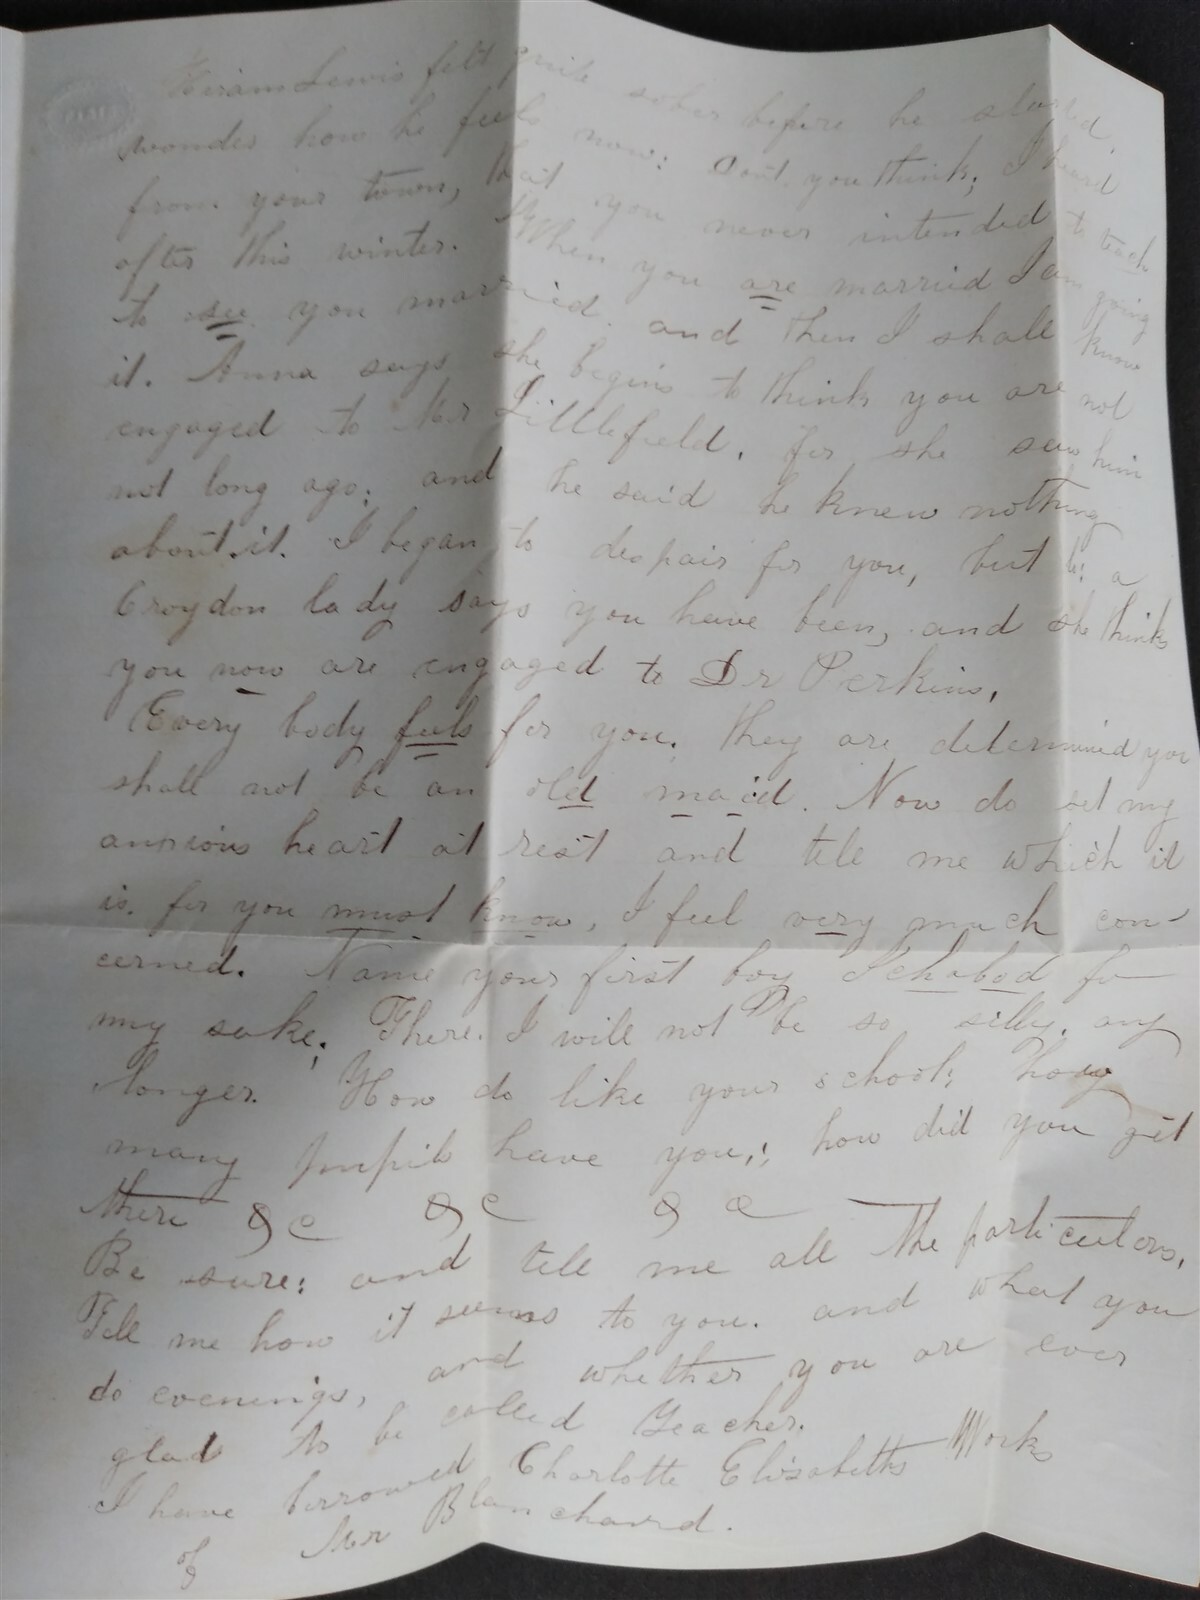 Hiram Lewis felt quite sober before he started,
wonder how he feels now: Dont you think; I heard
from your town, that you never intended to teach
after this winter. When you are married I am going
to see you married. and then I shall know
it. Anna says she begins to think you are not
engaged to Mr Littlefield, for she saw him
not long ago; and he said he knew nothing
about it. I began to despair for you, but a
Croydon lady says you have been, and she thinks
you now are engaged to Dr Perkins,
Every body feels for you. they are determined you
shall not be an old maid. Now do set my
anxious heart at rest and tell me which it
is. for you must know, I feel very much con-
cerned. Name your first boy Ichabod for
my sake; There. I will not be so silly. any
longer. How do like your school; how
many pupils have you,; how did you get
there &c &c &c
Be sure: and tell me all the particulars,
Tell me how it seems to you. and what you
do evenings, and whether you are ever
glad to be called Teacher.
I have borrowed Charlotte Elisabeths Works
of Mr Blanchard.